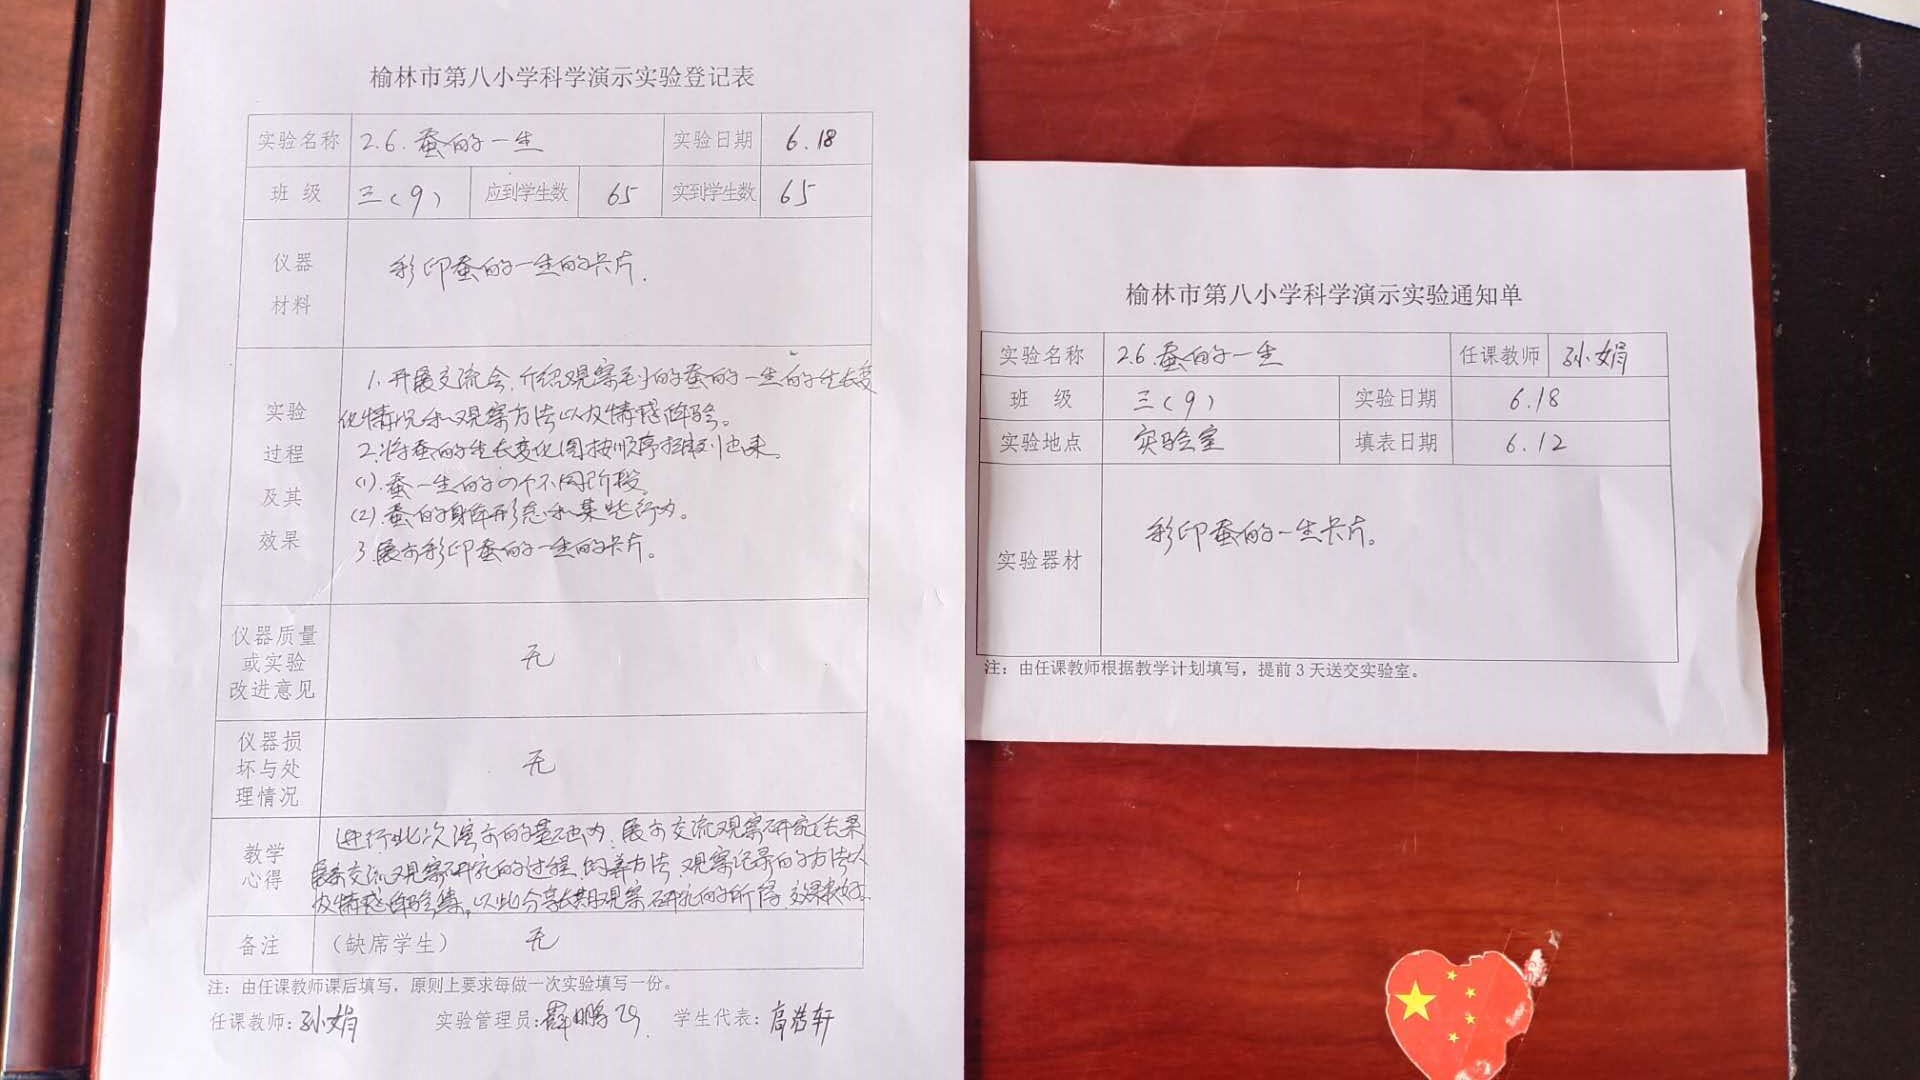 榆林市第八小学科学演示实验登记表
实验名称 2.6.蚕的一生 实验日期 6.18
班 级 三(9) 应到学生数 65 实到学生数 65
仪器
材料
彩印蚕的一生的卡片.
实验
过程
及其
效果
1.开展交流会,介绍观察到的蚕的一生的生长变
化情况和观察方法以及情感体验。
2.将蚕的生长变化图按顺序排列出来。
(1).蚕一生的四个不同阶段。
(2).蚕的身体形态和某些行为。
3.展示彩印蚕的一生的卡片。
仪器质量
或实验
改进意见
无
仪器损
坏与处
理情况
无
教学
心得
进行此次演示的基础为,展示交流观察研究结果
展示交流观察研究的过程,饲养方法,观察记录的方法以
及情感体验等,以此分享长期观察研究的所得,效果较好.
备注 (缺席学生) 无
注: 由任课教师课后填写,原则上要求每做一次实验填写一份。
任课教师:孙娟 实验管理员: 学生代表:高浩轩
榆林市第八小学科学演示实验通知单
实验名称 2.6 蚕的一生 任课教师 孙娟
班 级 三(9) 实验日期 6.18
实验地点 实验室 填表日期 6.12
实验器材 彩印蚕的一生卡片。
注: 由任课教师根据教学计划填写,提前 3 天送交实验室。